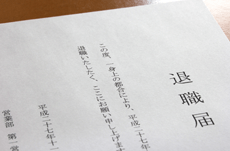 退職届
この度、一身上の都合により、平成二十七年十
退職いたしたく、ここにお願い申し上げま
平成二十七年十
営業部 第一営